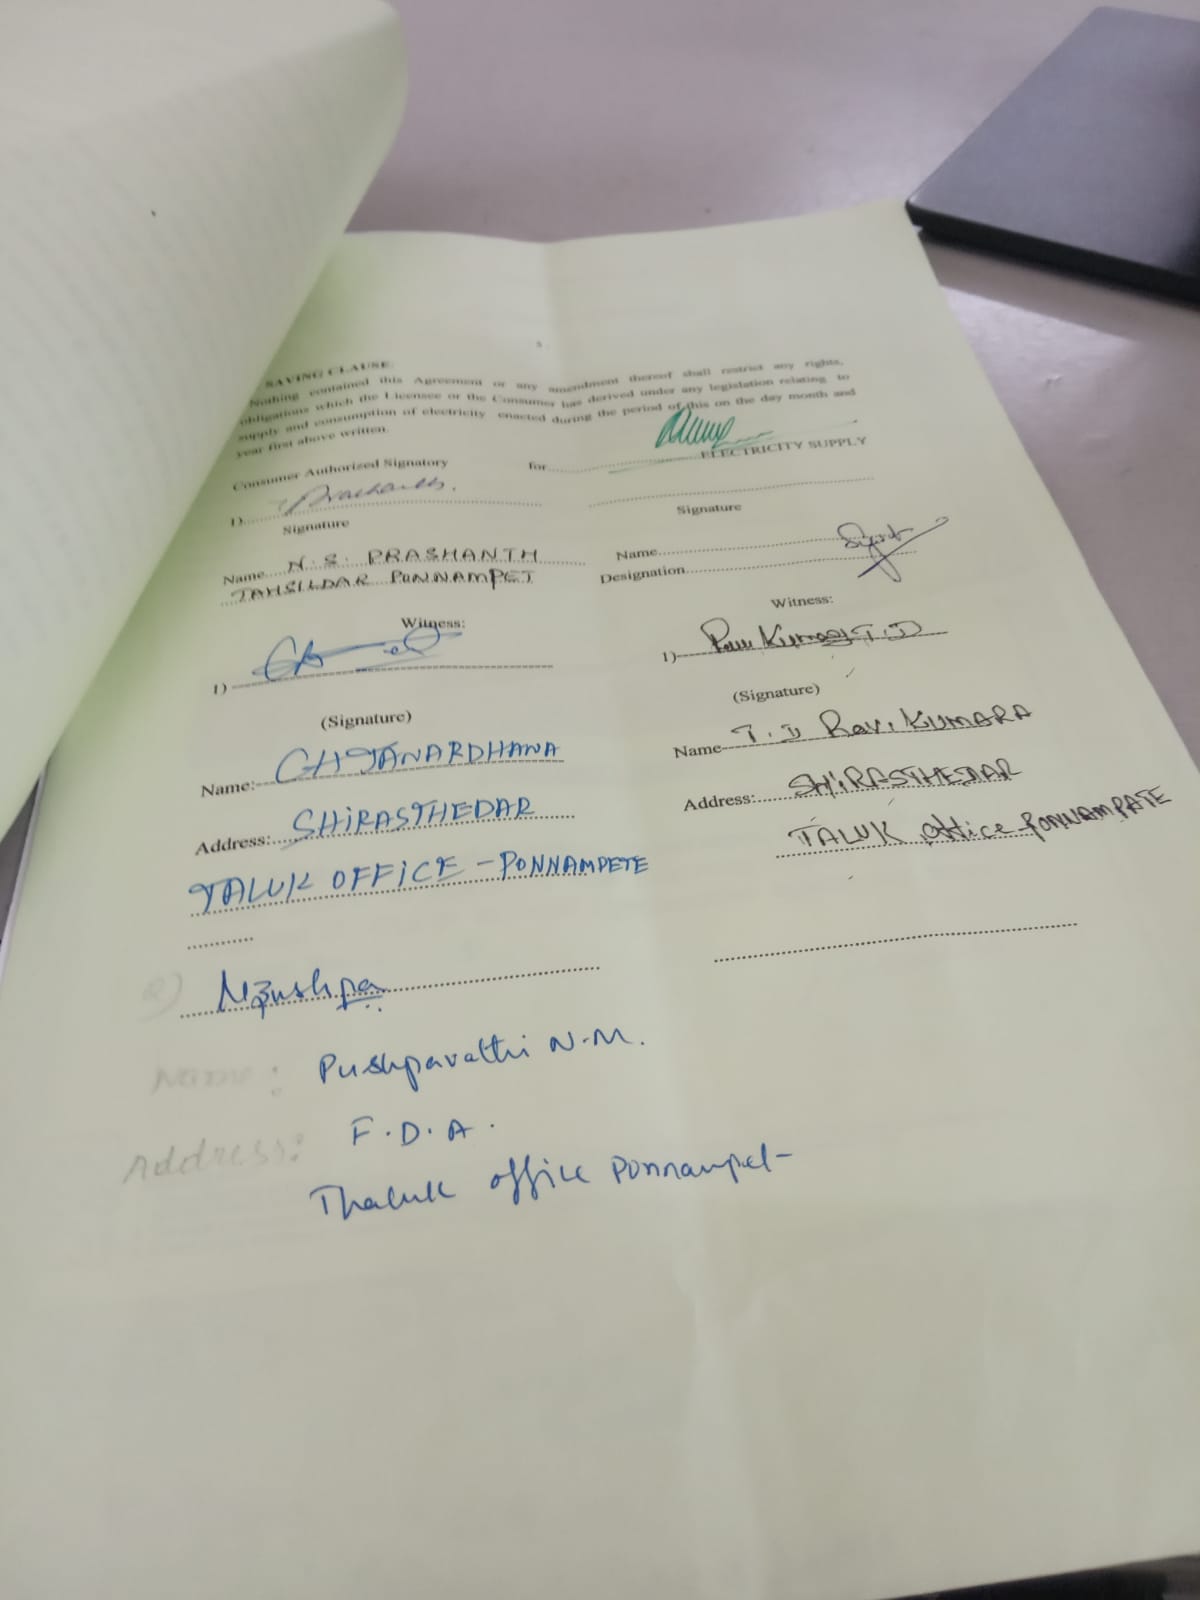 5
SAVING CLAUSE:
Nothing contained this Agreement or any amendment thereof shall restrict any rights,
obligations which the Licensee or the Consumer has derived under any legislation relating to
supply and consumption of electricity enacted during the period of this on the day month and
year first above written.
Consumer Authorized Signatory
for
ELECTRICITY SUPPLY
1) Prashanth.
Signature
Signature
Name N. S. PRASHANTH
TAHSILDAR PONNAMPET
Name
Designation
Witness:
1)
(Signature)
Name: CH JANARDHANA
Address: SHIRASTHEDAR
TALUK OFFICE - PONNAMPETE
Witness:
1) Kumar T.D
(Signature)
Name T. D Ravi KUMARA
Address: SHIRASTHEDAR
TALUK office PONNAMPATE
2)
Name: Pushpavathi N.M.
Address: F.D.A.
Thaluk office Ponnampet